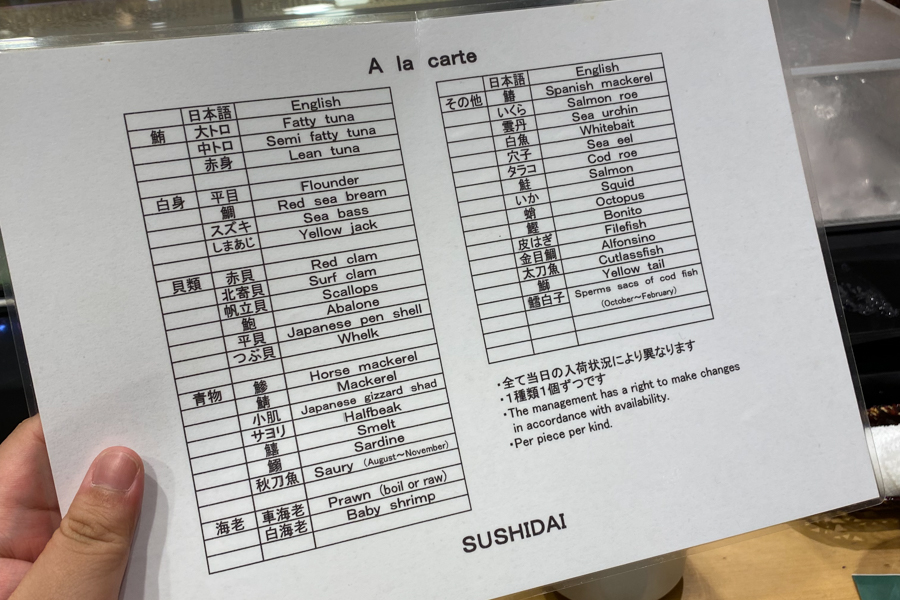 A la carte
日本語 English
鮪 大トロ Fatty tuna
中トロ Semi fatty tuna
赤身 Lean tuna
白身 平目 Flounder
鯛 Red sea bream
スズキ Sea bass
しまあじ Yellow jack
貝類 赤貝 Red clam
北寄貝 Surf clam
帆立貝 Scallops
鮑 Abalone
平貝 Japanese pen shell
つぶ貝 Whelk
青物 鯵 Horse mackerel
鯖 Mackerel
小肌 Japanese gizzard shad
サヨリ Halfbeak
鱚 Smelt
鰯 Sardine
秋刀魚 Saury (August～November)
海老 車海老 Prawn (boil or raw)
白海老 Baby shrimp
日本語 English
その他 鰆 Spanish mackerel
いくら Salmon roe
雲丹 Sea urchin
白魚 Whitebait
穴子 Sea eel
タラコ Cod roe
鮭 Salmon
いか Squid
蛸 Octopus
鰹 Bonito
皮はぎ Filefish
金目鯛 Alfonsino
太刀魚 Cutlassfish
鰤 Yellow tail
鱈白子 Sperms sacs of cod fish
(October～February)
・全て当日の入荷状況により異なります
・1種類1個ずつです
・The management has a right to make changes
in accordance with availability.
・Per piece per kind.
SUSHIDAI